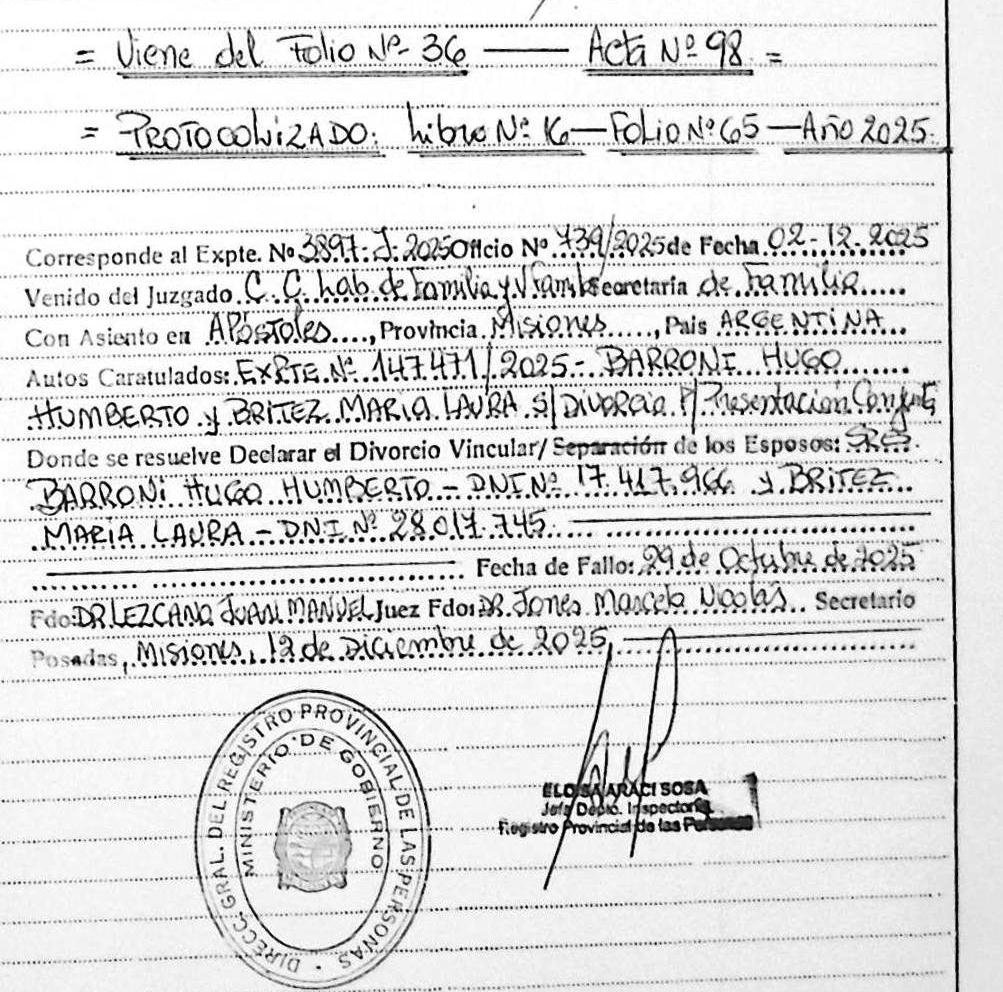 = Viene del Folio Nº 36 — Acta Nº 98 =
= PROTOCOLIZADO: Libro Nº 16 — FOLIO Nº 65 — Año 2025.
Corresponde al Expte. Nº 3897-J-2025 Oficio Nº 739/2025 de Fecha 02-12-2025
Venido del Juzgado C. C. Lab. de Familia y V. Fam. Secretaria de Familia
Con Asiento en APóstoles, Provincia Misiones, Pais ARGENTINA
Autos Caratulados: EXPTE. Nº 147.471/2025.- BARRONI HUGO
HUMBERTO y BRITEZ MARIA LAURA S/ Divorcio P/ Presentación Conjunta
Donde se resuelve Declarar el Divorcio Vincular/ Separación de los Esposos: SRES.
BARRONI HUGO HUMBERTO - DNI Nº 17.417.966 y BRITEZ
MARIA LAURA - DNI Nº 28.017.745.
Fecha de Fallo: 29 de Octubre de 2025
Fdo: DR LEZCANO JUAN MANUEL Juez Fdo: DR. Jones Marcelo Nicolás Secretario
Posadas, Misiones, 12 de Diciembre de 2025
DIRECC. GRAL. DEL REGISTRO PROVINCIAL DE LAS PERSONAS
MINISTERIO DE GOBIERNO
ELOISA ARACI SOSA
Jefa Depto. Inspectoria
Registro Provincial de las Personas